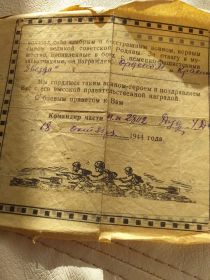 показал себя храбрым и бесстрашным воином, верным
сыном великой советской Родины. За отвагу и му-
жество, проявленные в боях с немецко-фашистскими
захватчиками, он награжден Орденом
Звезда"
Мы гордимся таким воином-героем и поздравляем
Вас с его высокой правительственной наградой.
С боевым приветом к Вам
Командир части п.п.
18 1944 года.